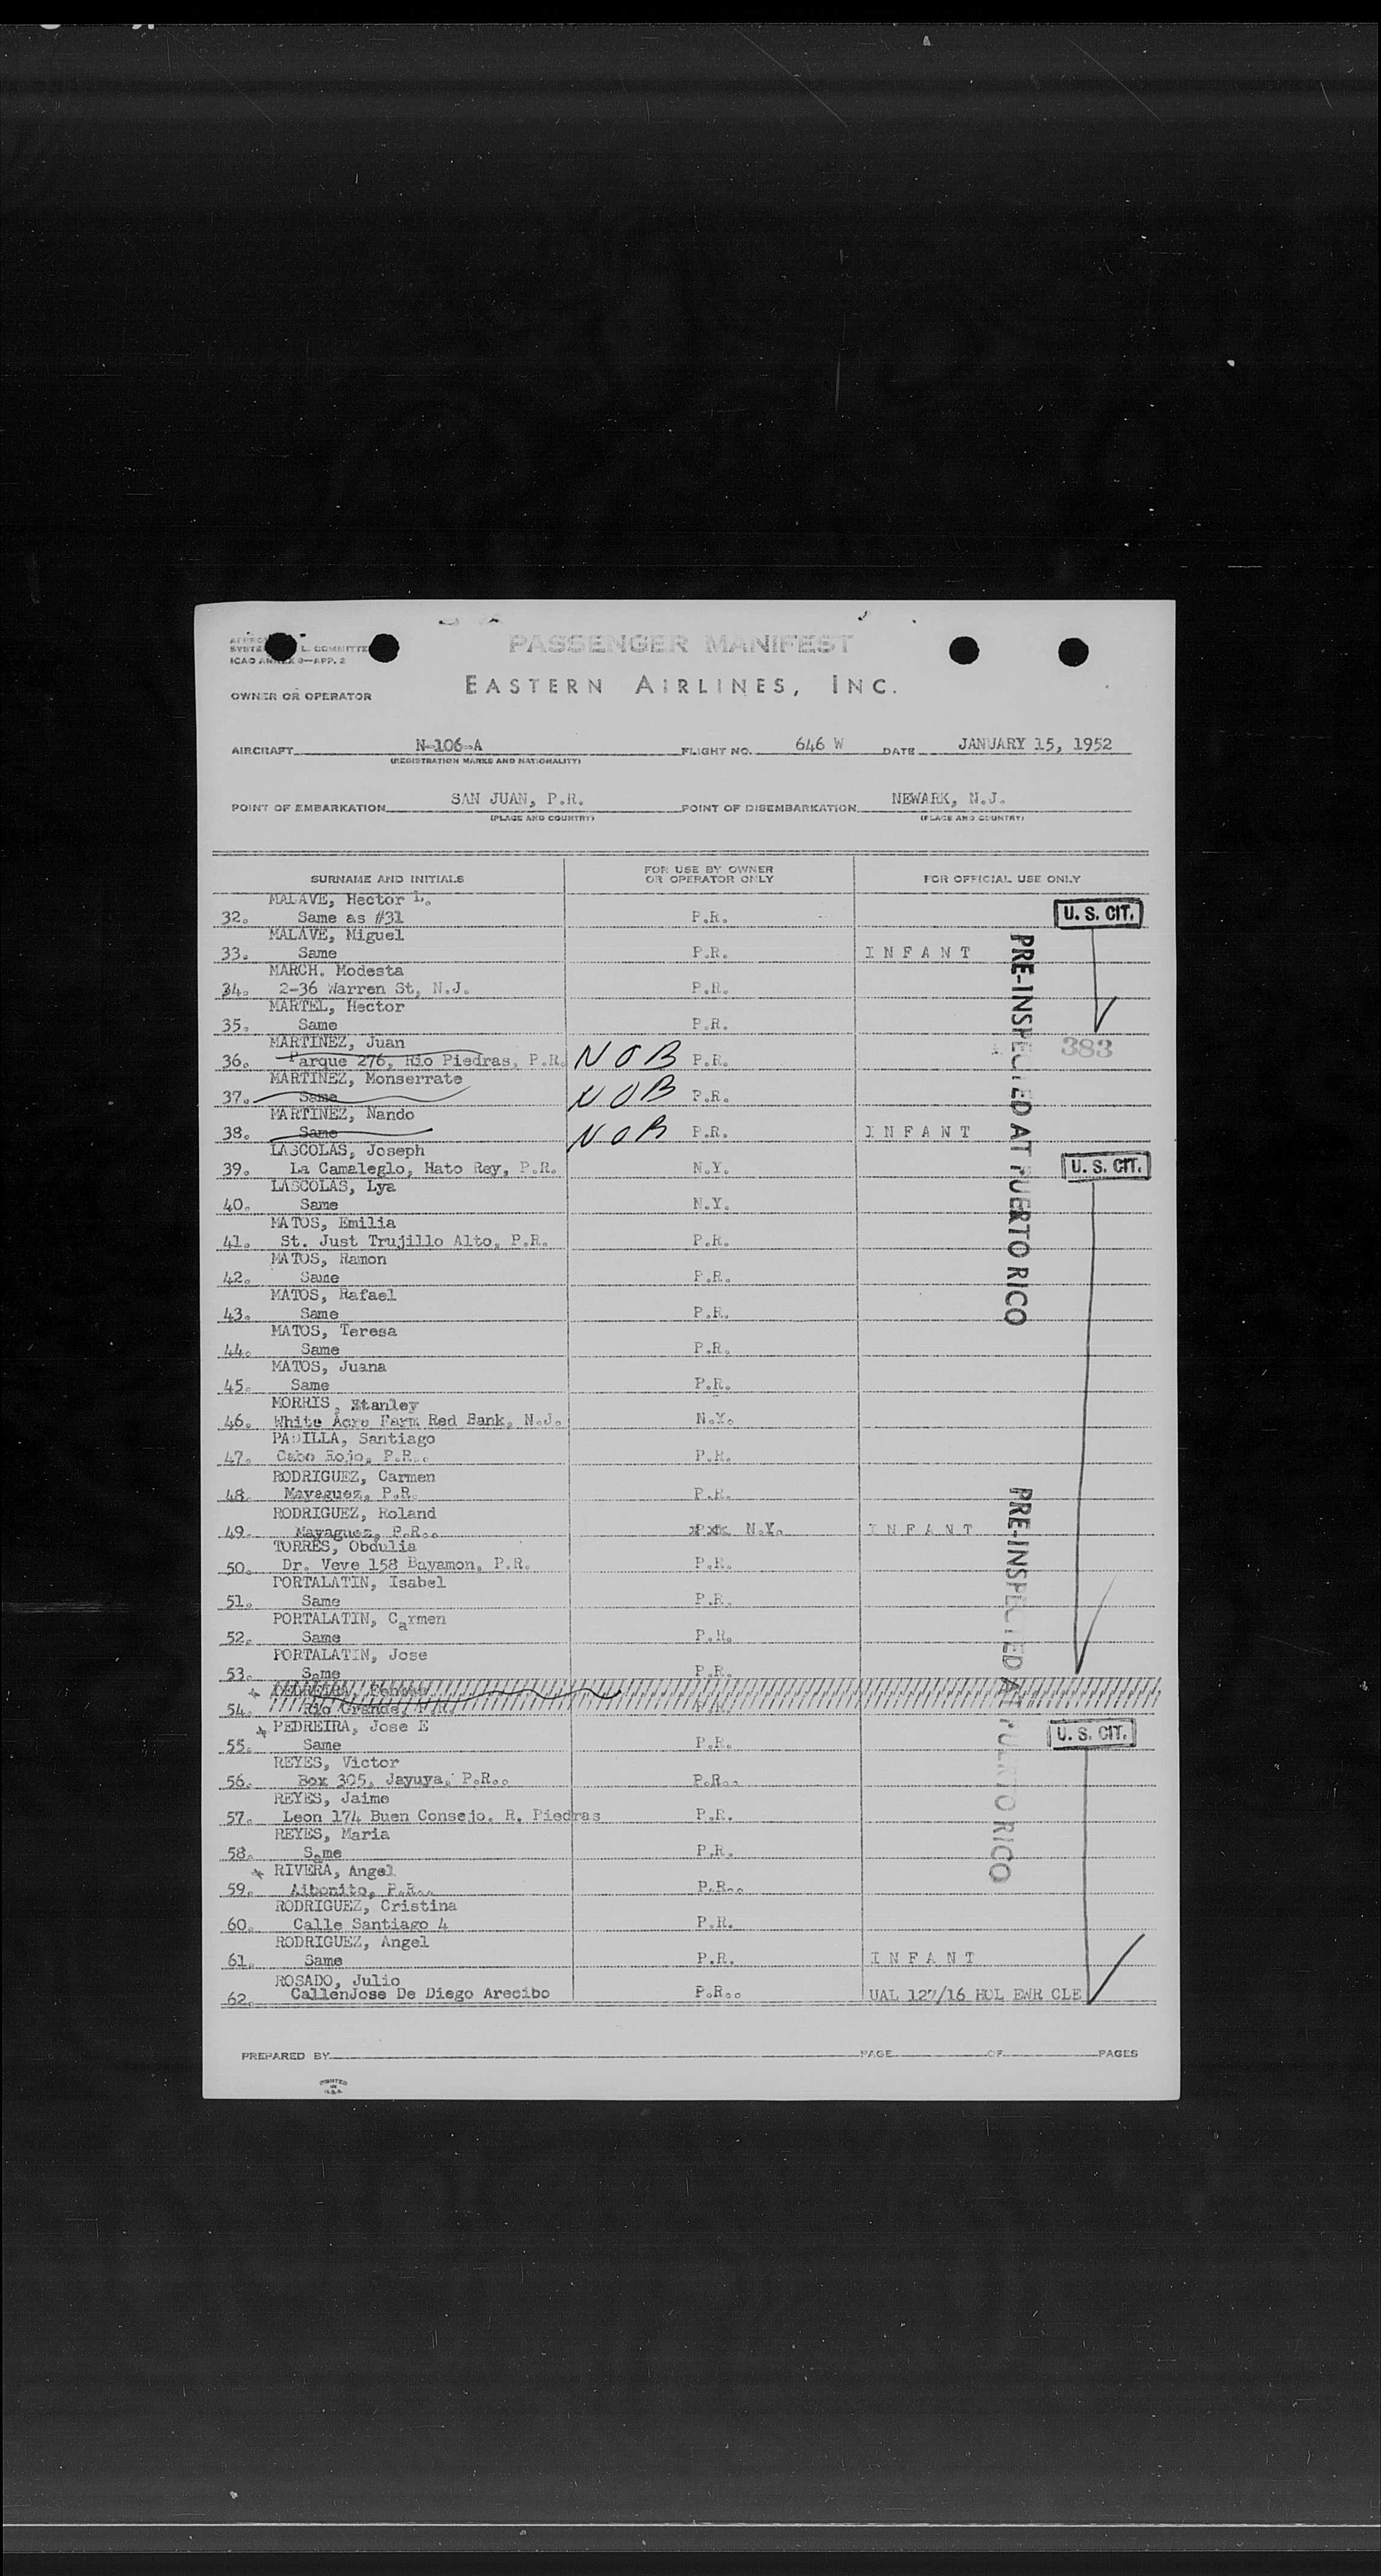 PASSENGER MANIFEST
ICAO ANNEX 9—APP. 2
EASTERN AIRLINES, INC.
OWNER OR OPERATOR
AIRCRAFT N-106-A FLIGHT NO. 646 W DATE JANUARY 15, 1952
(REGISTRATION MARKS AND NATIONALITY)
POINT OF EMBARKATION SAN JUAN, P.R. POINT OF DISEMBARKATION NEWARK, N.J.
(PLACE AND COUNTRY) (PLACE AND COUNTRY)
SURNAME AND INITIALS FOR USE BY OWNER OR OPERATOR ONLY FOR OFFICIAL USE ONLY
MALAVE, Hector L.
32. Same as #31 P.R. U. S. CIT.
MALAVE, Miguel
33. Same P.R. I N F A N T
MARCH. Modesta
34. 2-36 Warren St, N.J. P.R.
MARTEL, Hector
35. Same P.R.
MARTINEZ, Juan
36. Parque 276, Rio Piedras, P.R. NOB P.R. 383
MARTINEZ, Monserrate
37. Same NOB P.R.
MARTINEZ, Nando
38. Same NOB P.R. I N F A N T
LASCOLAS, Joseph
39. La Camaleglo, Hato Rey, P.R. N.Y. U. S. CIT.
LASCOLAS, Lya
40. Same N.Y.
MATOS, Emilia
41. St. Just Trujillo Alto, P.R. P.R.
MATOS, Ramon
42. Same P.R.
MATOS, Rafael
43. Same P.R.
MATOS, Teresa
44. Same P.R.
MATOS, Juana
45. Same P.R.
MORRIS, Stanley
46. White Acre Farm Red Bank, N.J. N.Y.
PADILLA, Santiago
47. Cabo Rojo, P.R.. P.R.
RODRIGUEZ, Carmen
48. Mayaguez, P.R. P.R.
RODRIGUEZ, Roland
49. Mayaguez, P.R.. N.Y. I N F A N T
TORRES, Obdulia
50. Dr. Veve 158 Bayamon, P.R. P.R.
PORTALATIN, Isabel
51. Same P.R.
PORTALATIN, Carmen
52. Same P.R.
PORTALATIN, Jose
53. Same P.R.
PEDREIRA,
54. Rio Grande, P.R. P.R.
PEDREIRA, Jose E
55. Same P.R. U. S. CIT.
REYES, Victor
56. Box 305, Jayuya, P.R.. P.R..
REYES, Jaime
57. Leon 174 Buen Consejo. R. Piedras P.R.
REYES, Maria
58. Same P.R.
RIVERA, Angel
59. Aibonito, P.R.. P.R..
RODRIGUEZ, Cristina
60. Calle Santiago 4 P.R.
RODRIGUEZ, Angel
61. Same P.R. I N F A N T
ROSADO, Julio
62. CallenJose De Diego Arecibo P.R.. UAL 127/16 HOL EWR CLE
PRE-INSPECTED AT PUERTO RICO
PRE-INSPECTED AT PUERTO RICO
PREPARED BY PAGE OF PAGES
PRINTED IN U.S.A.